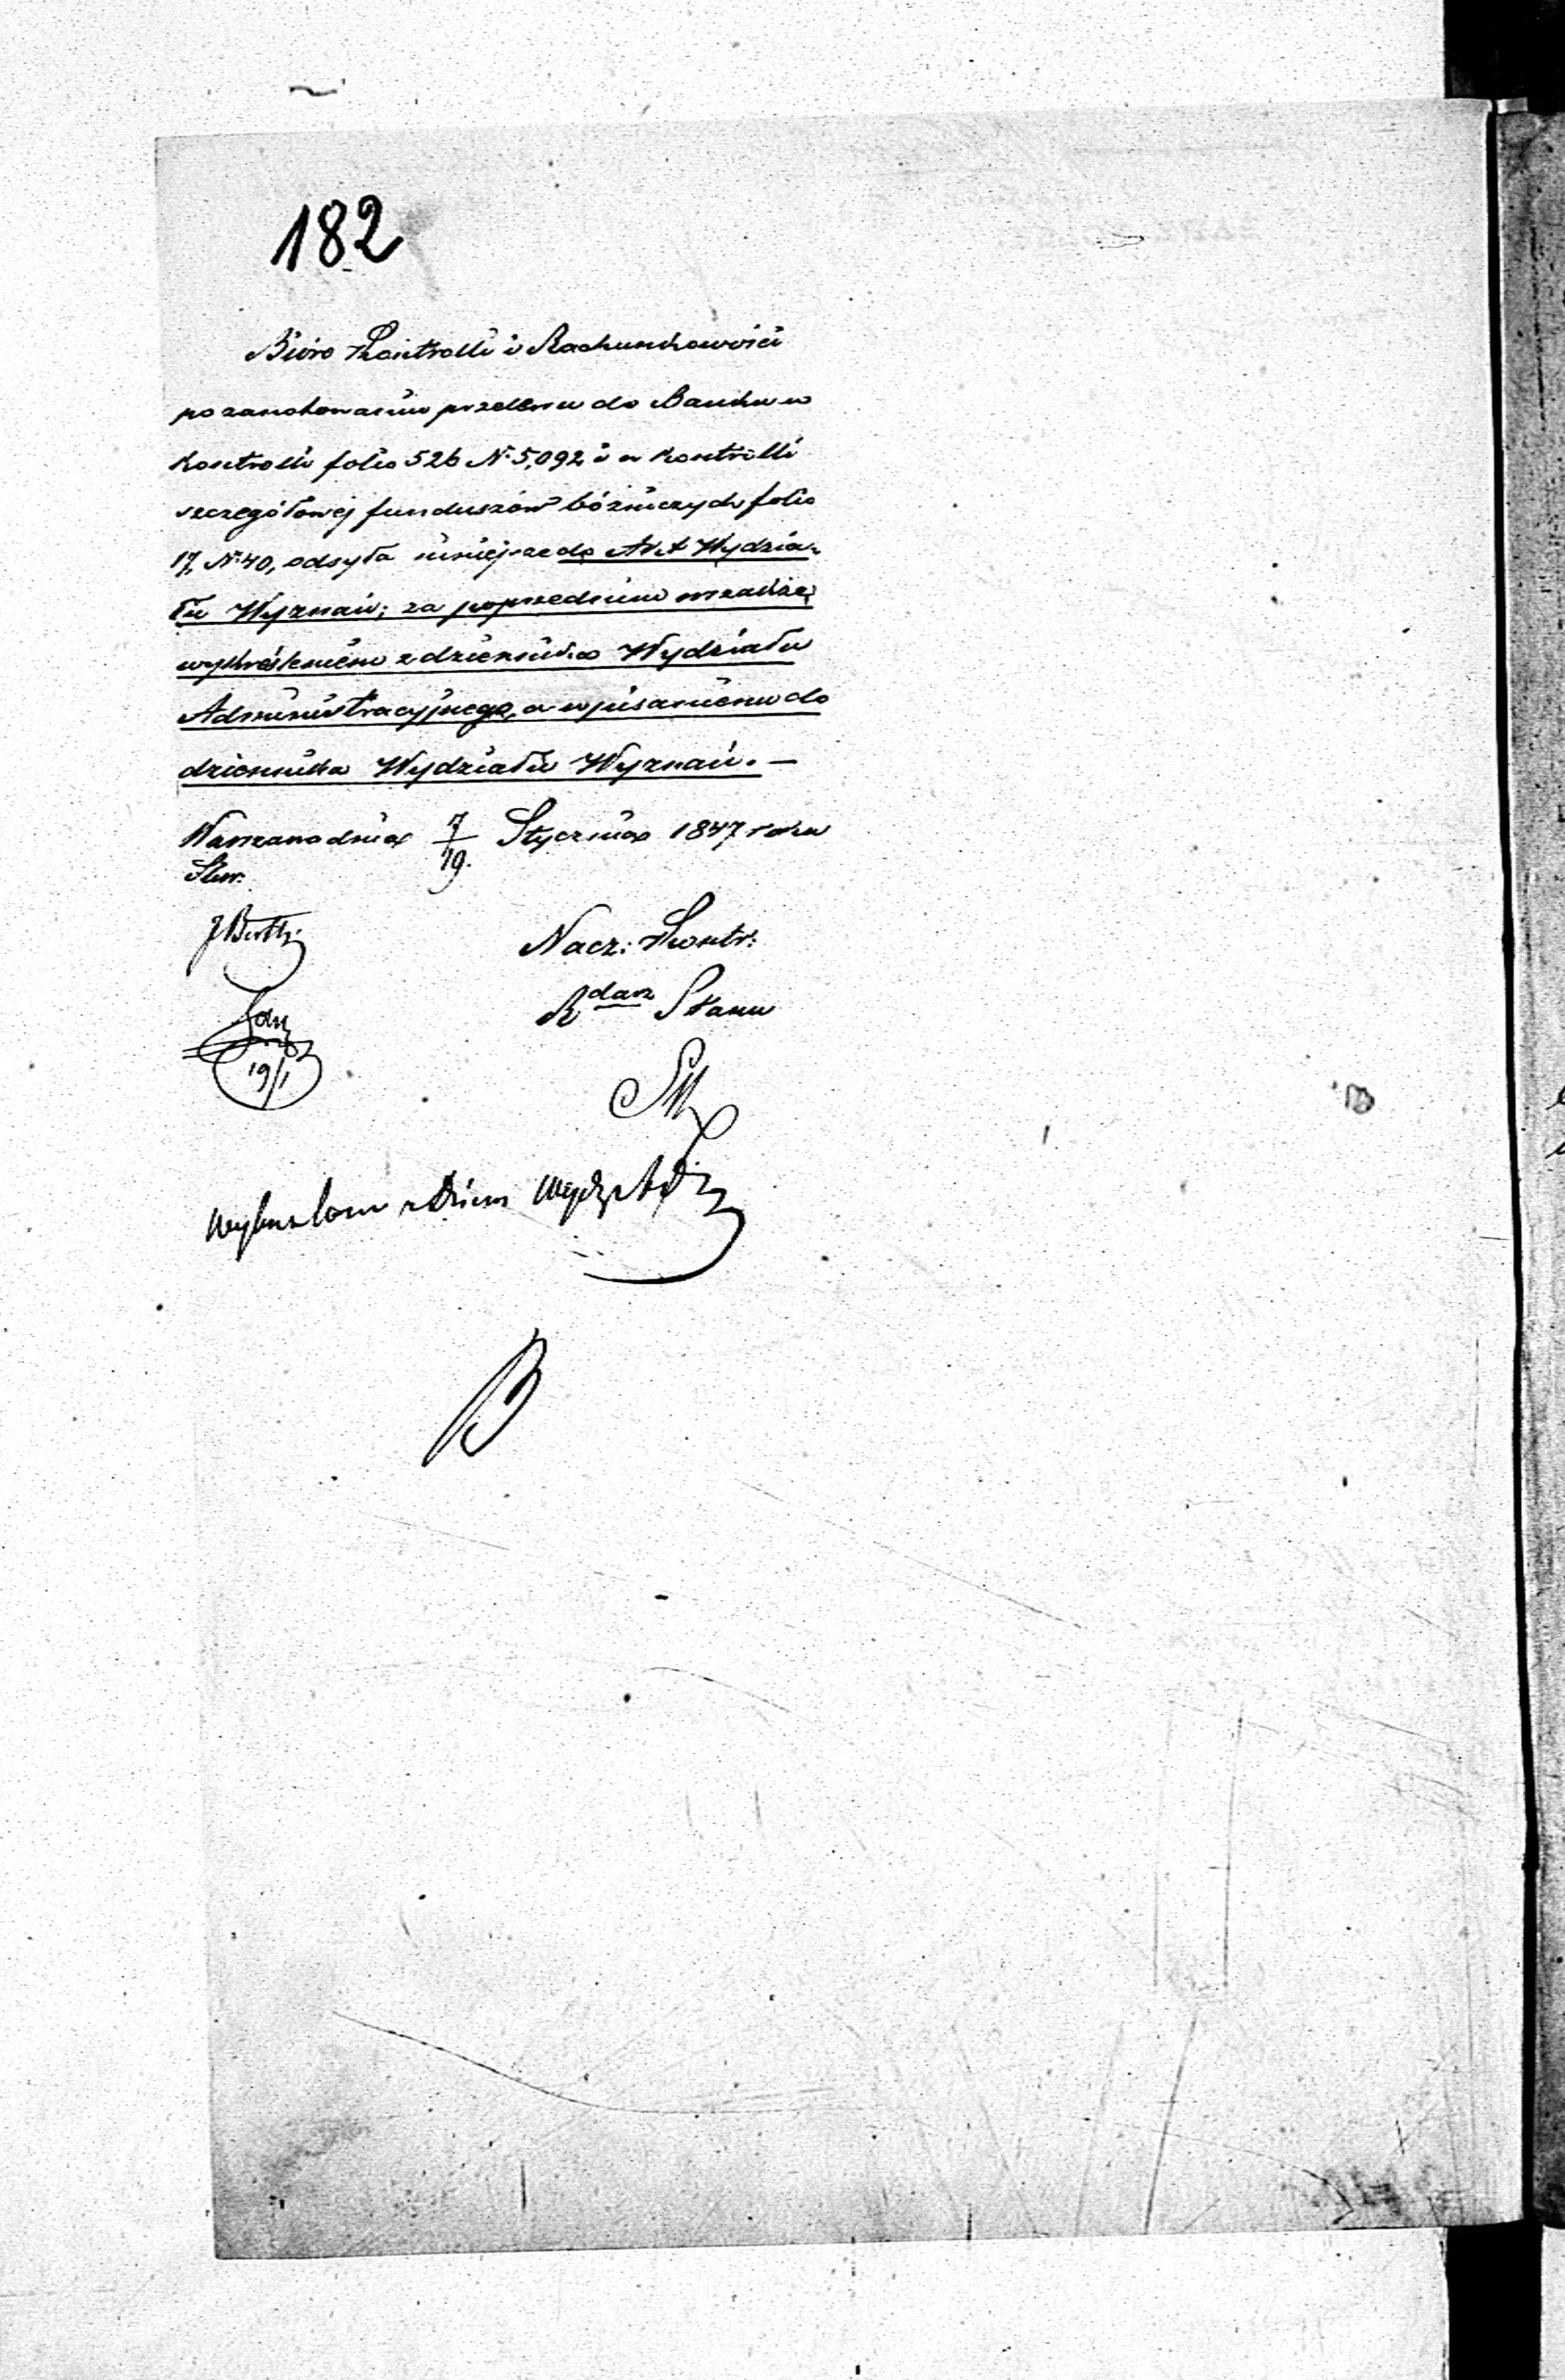 182
Biuro Kontrolli i Rachunkowości
po zanotowaniu przelewu do Banku w
Kontrolli folio 526 N. 5,092 i w Kontrolli
szczegółowej funduszów bóźniczych folio
17, N. 40, odsyła niniejsze do Wydzia-
łu Wyznań; za poprzedniem wszakże
wykreśleniem z dziennika Wydziału
Administracyjnego, a wpisaniem do
dziennika Wydziału Wyznań. —
Warszawa dnia 7/19. Stycznia 1847 roku
Nacz: Kontr:
R. Stanu
19/1